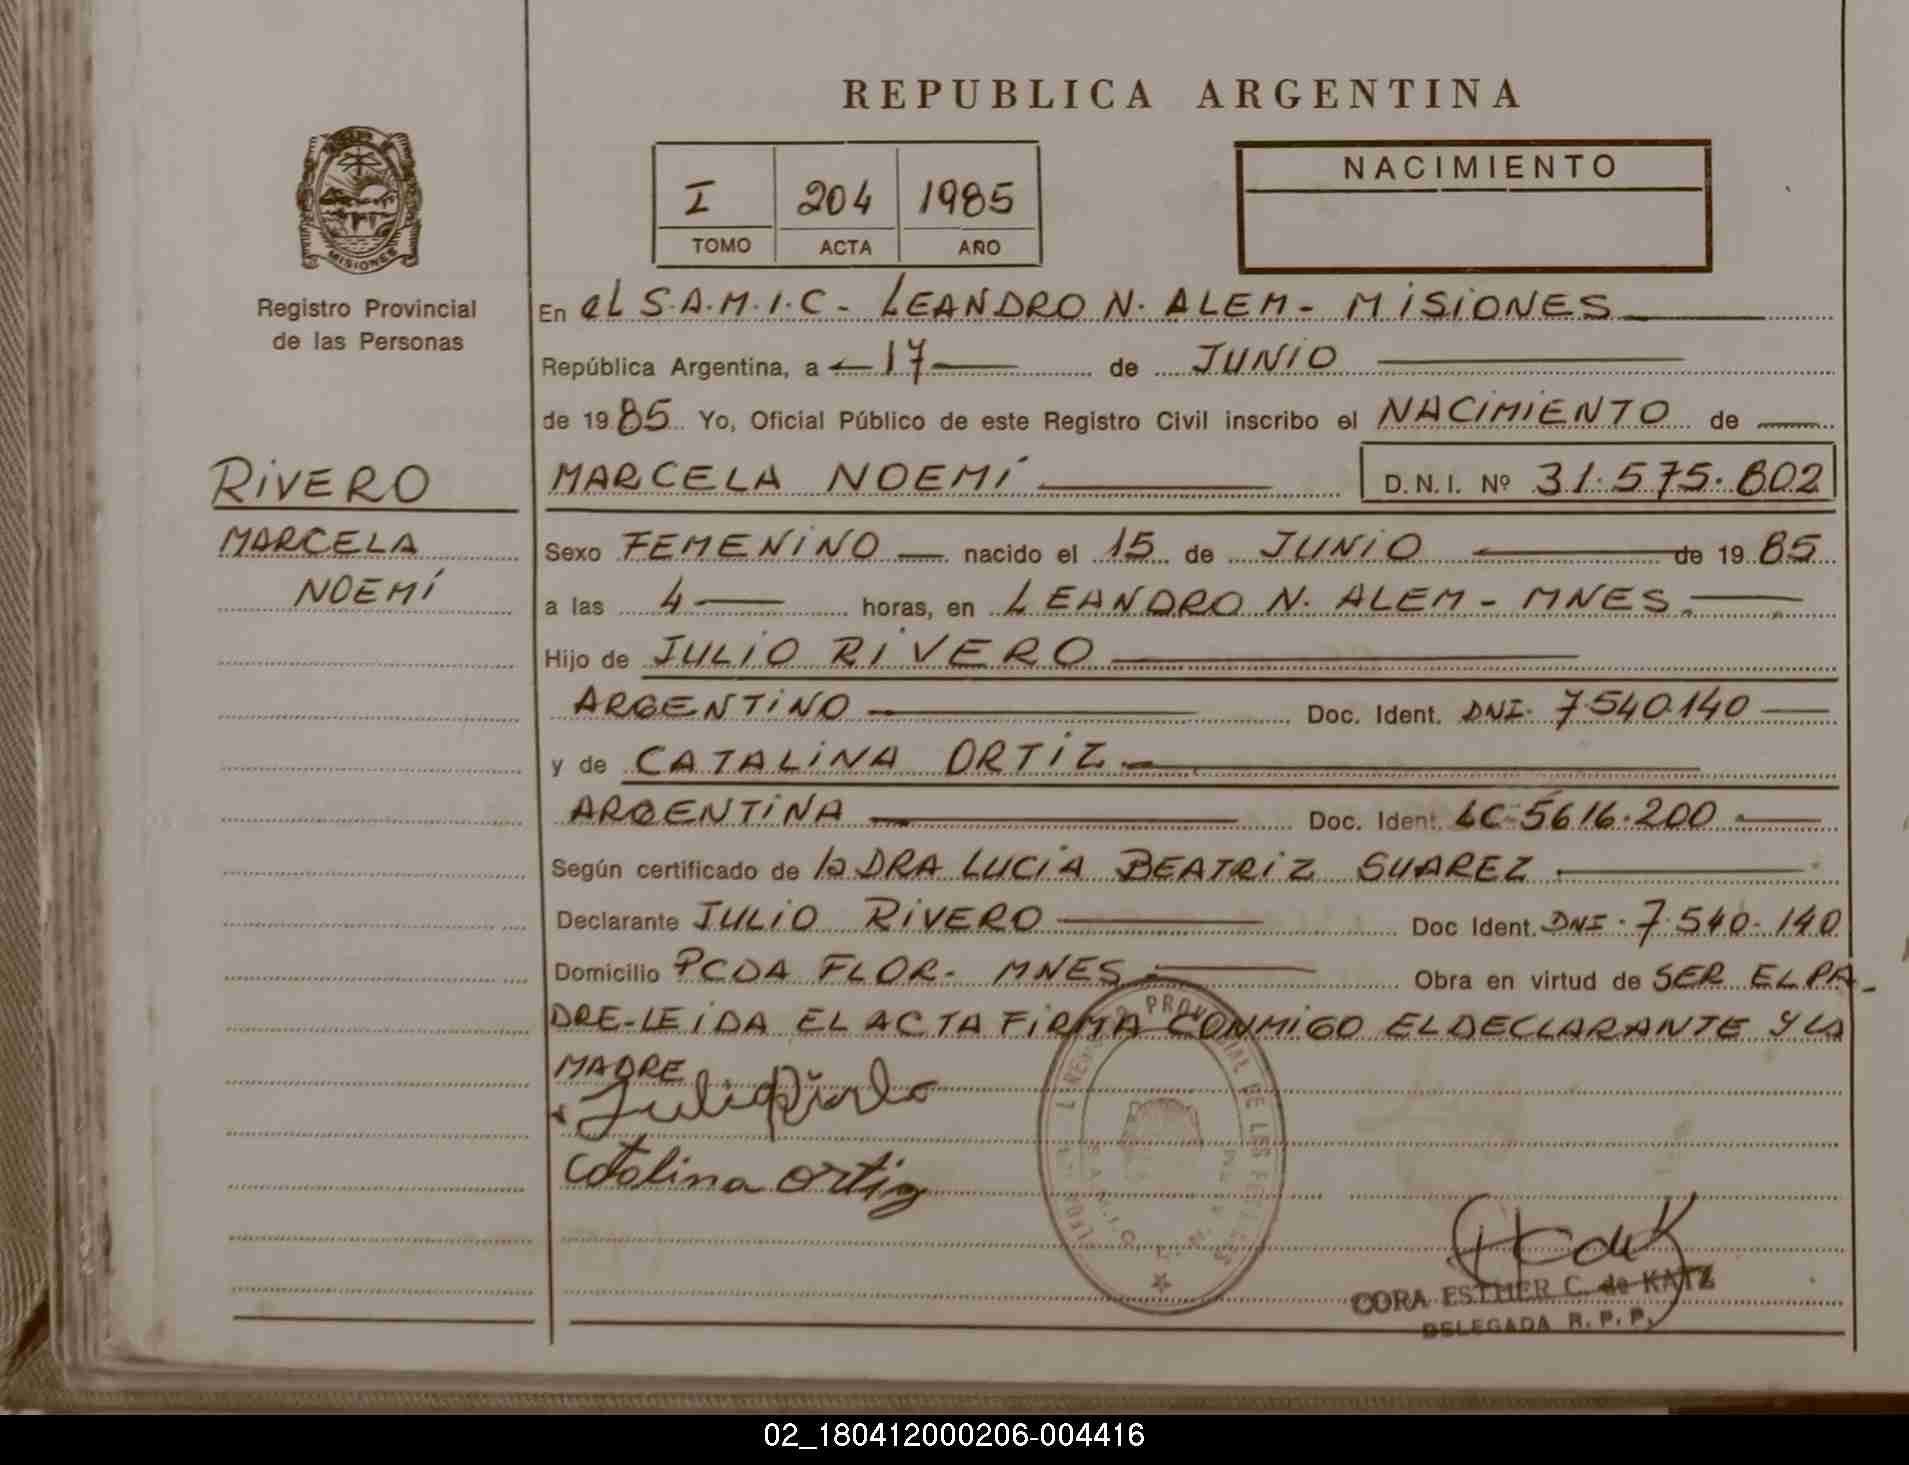 REPUBLICA ARGENTINA
I 204 1985
TOMO ACTA AÑO
NACIMIENTO
MISIONES
Registro Provincial
de las Personas
En el S.A.M.I.C - LEANDRO N. ALEM - MISIONES
República Argentina, a 17 de JUNIO
de 1985 Yo, Oficial Público de este Registro Civil inscribo el NACIMIENTO de
RIVERO
MARCELA NOEMÍ
MARCELA NOEMÍ D.N.I. Nº 31.575.802
Sexo FEMENINO nacido el 15 de JUNIO de 1985
a las 4 horas, en LEANDRO N. ALEM - MNES.
Hijo de JULIO RIVERO
ARGENTINO Doc. Ident. DNI. 7.540.140
y de CATALINA ORTIZ
ARGENTINA Doc. Ident. LC-5616.200
Según certificado de la DRA LUCIA BEATRIZ SUAREZ
Declarante JULIO RIVERO Doc Ident. DNI. 7.540.140
Domicilio PCDA FLOR - MNES Obra en virtud de SER EL PA-
DRE-LEIDA EL ACTA FIRMA CONMIGO EL DECLARANTE Y LA
MADRE
Catalina Ortiz
CORA ESTHER C. de KATZ
DELEGADA R. P. P.
02_180412000206-004416